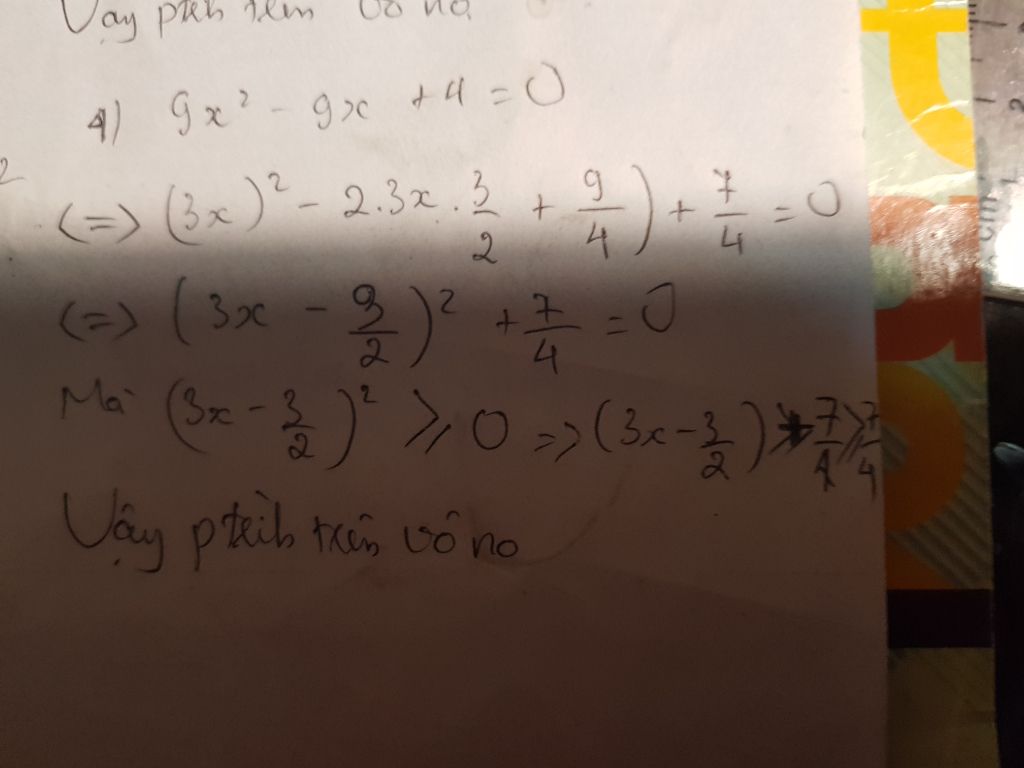 Vậy ptrình trên vô no
4) 9x² - 9x + 4 = 0
<=> (3x)² - 2.3x.3/2 + 9/4) + 7/4 = 0
<=> (3x - 9/2)² + 7/4 = 0
Mà (3x - 3/2)² ⩾ 0 => (3x - 3/2) + 7/4 ⩾ 7/4
Vậy ptrình trên vô no